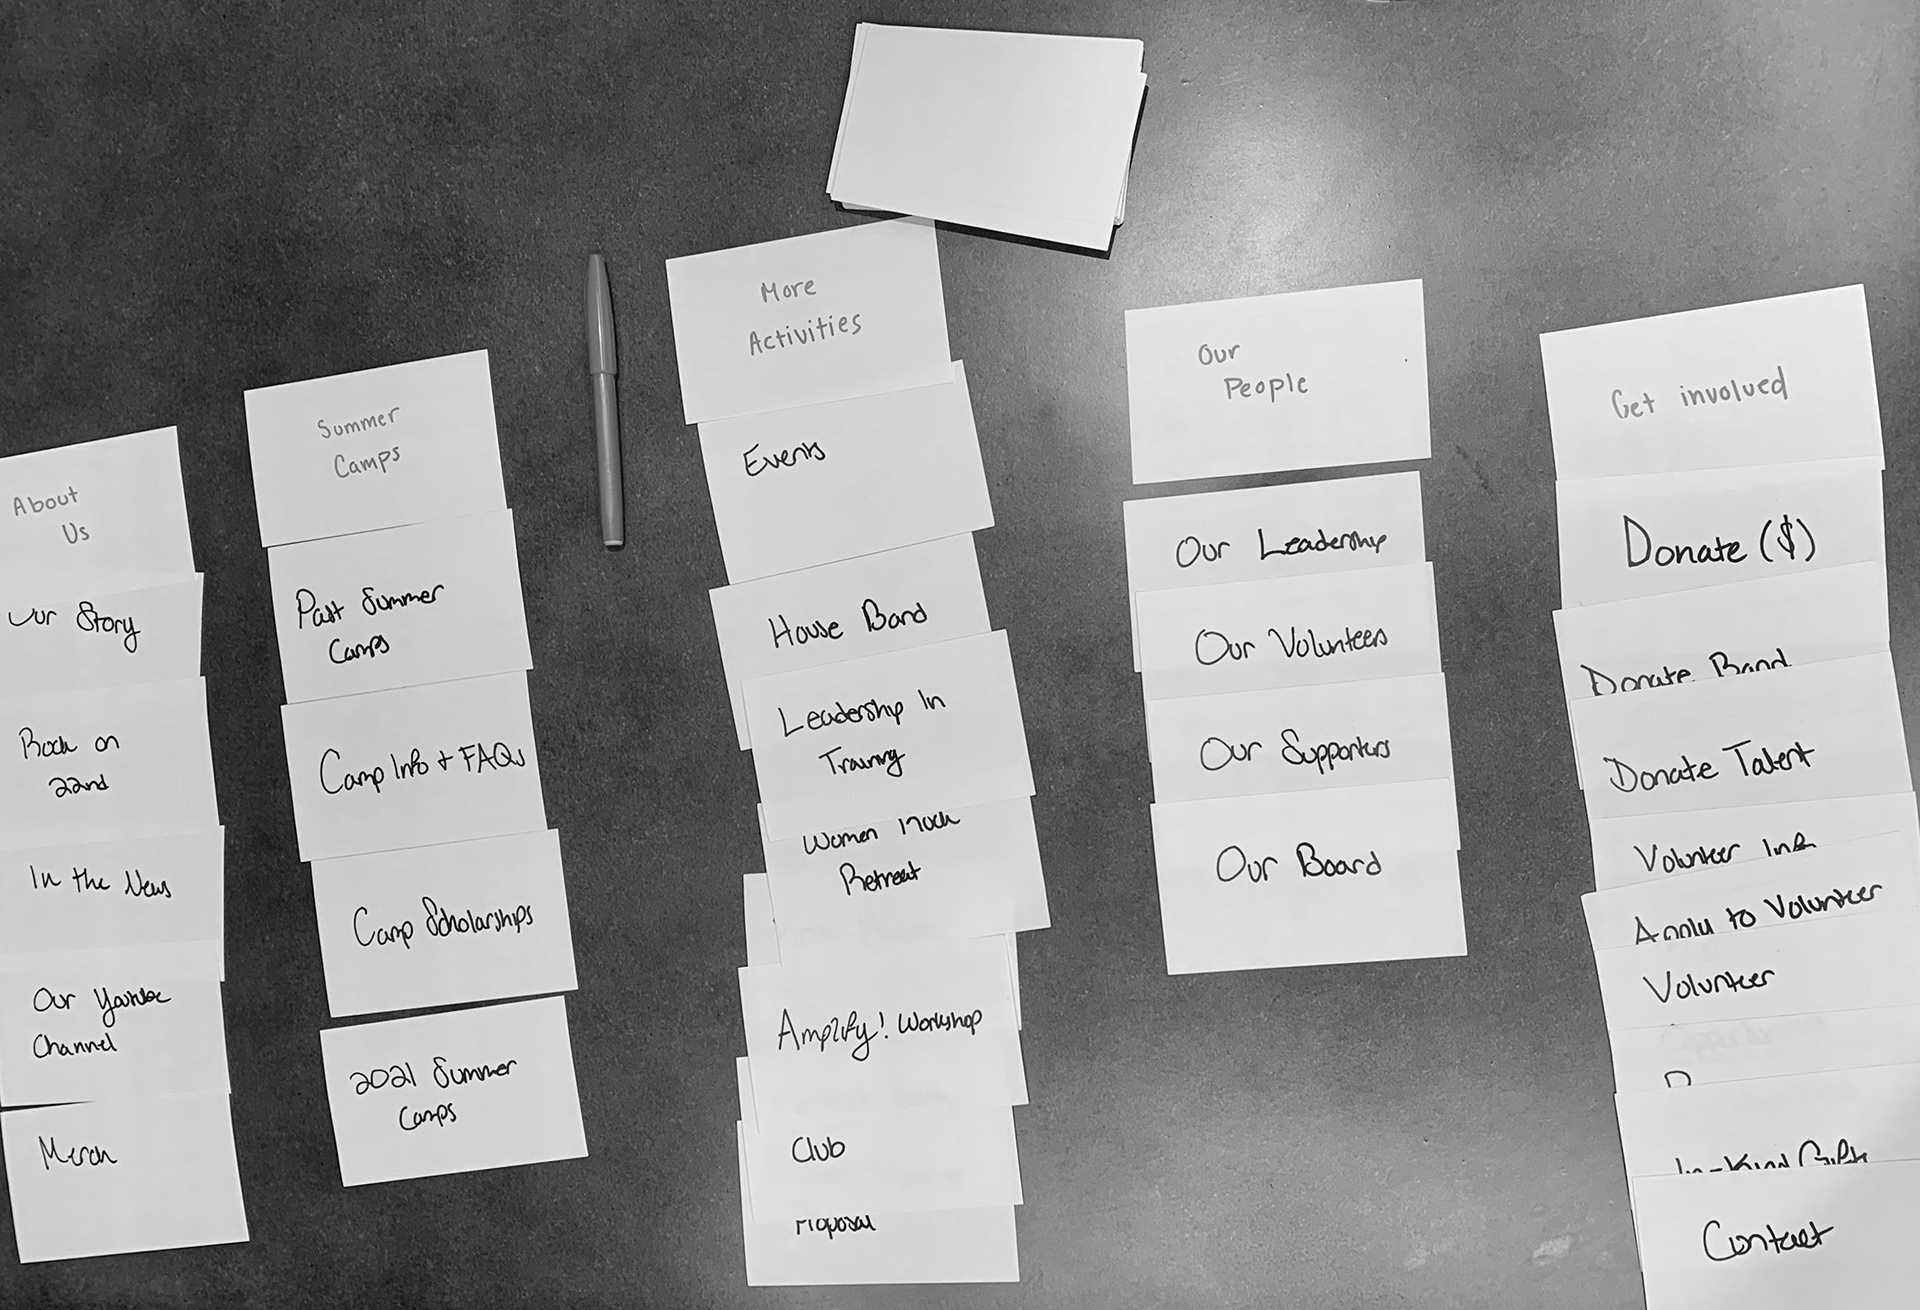 About
Us
Our Story
Rock on
22nd
In the News
Our Youtube
Channel
Merch
Summer
Camps
Past Summer
Camps
Camp Info + FAQs
Camp Scholarships
2021 Summer
Camps
More
Activities
Events
House Band
Leadership In
Training
Women rock
Retreat
Amplify! Workshop
Club
Proposal
Our
People
Our Leadership
Our Volunteers
Our Supporters
Our Board
Get involved
Donate ($)
Donate Band
Donate Talent
Volunteer Info
Apply to Volunteer
Volunteer
In-Kind Gifts
Contact